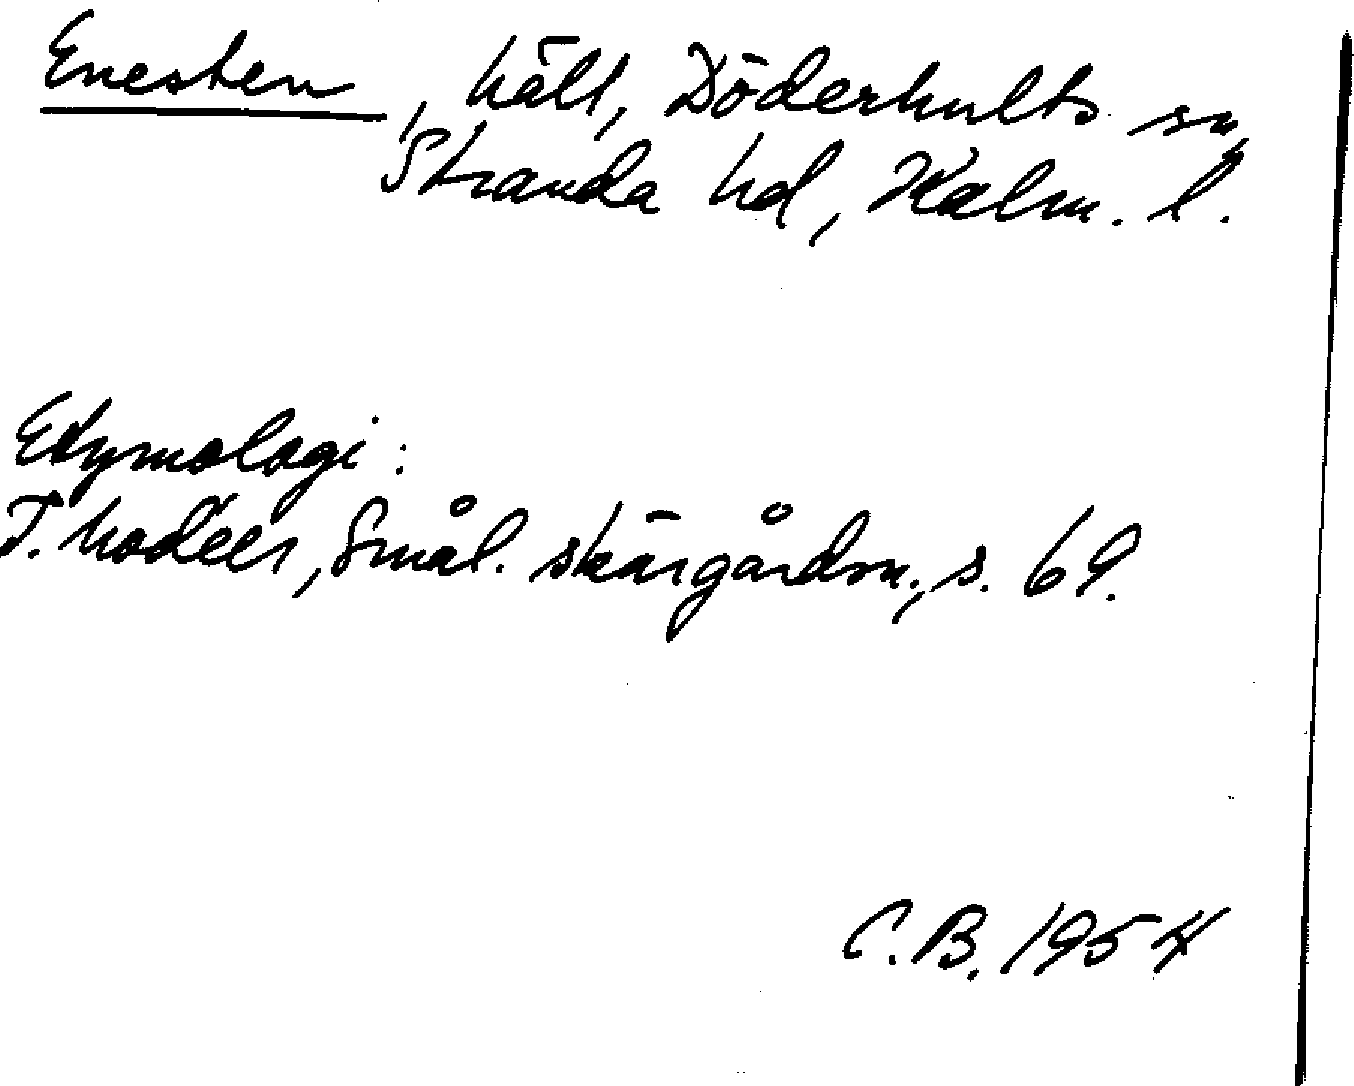 Enesten, häll, Döderhults sn,
Stranda hd, Kalm. l.
Etymologi:
I. Modéer, Smål. skärgårdsn., s. 69.
C.B. 1954